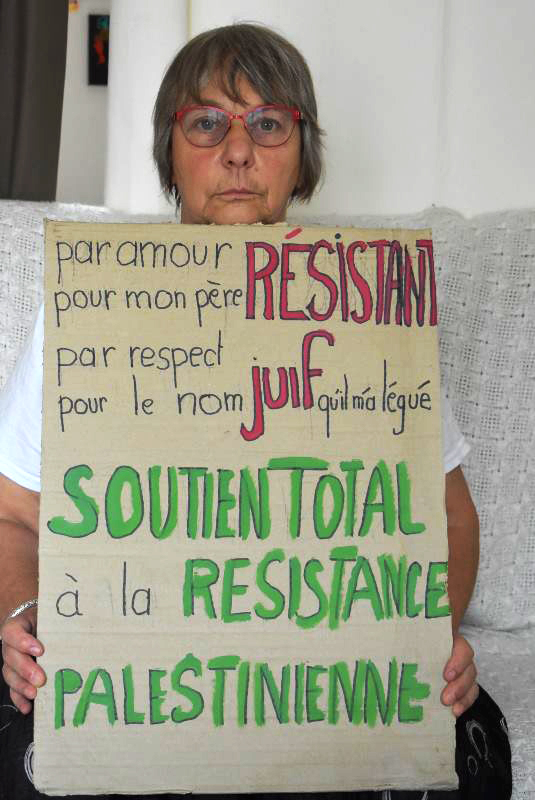 par amour RÉSISTANT
pour mon père
par respect
pour le nom juif qu'il m'a légué
SOUTIEN TOTAL
à la RESISTANCE
PALESTINIENNE